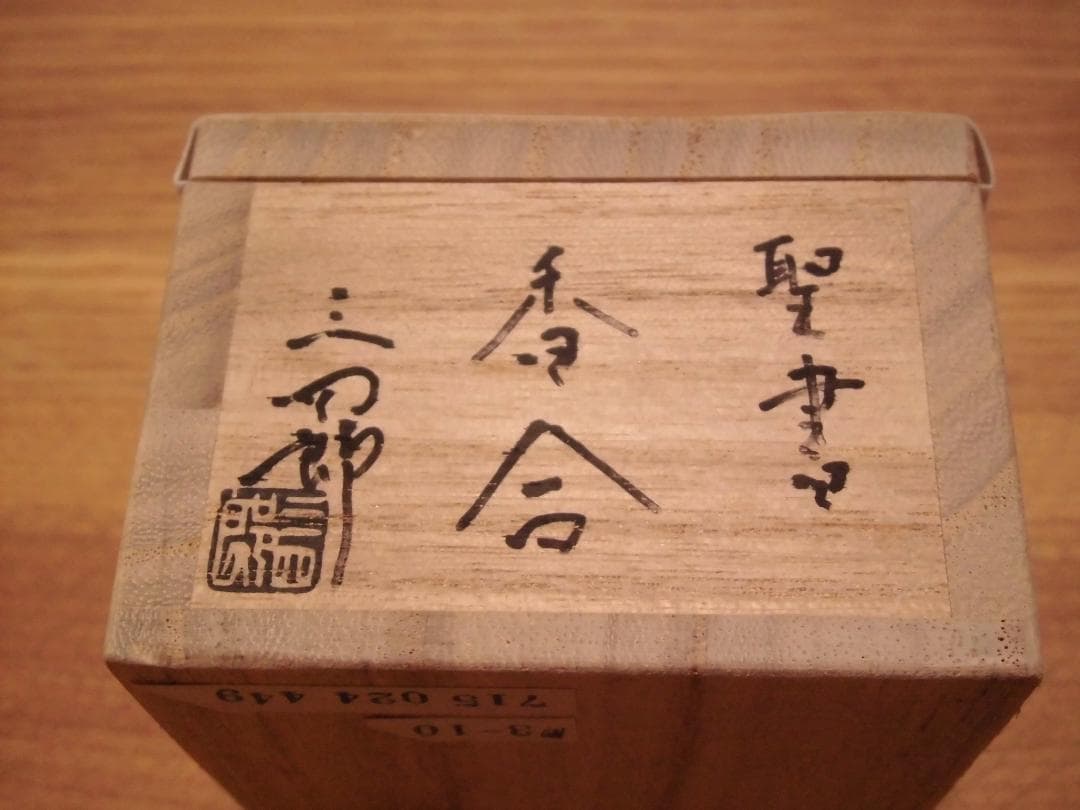 聖書
香合
三四郎
715 024 449
¥3-10